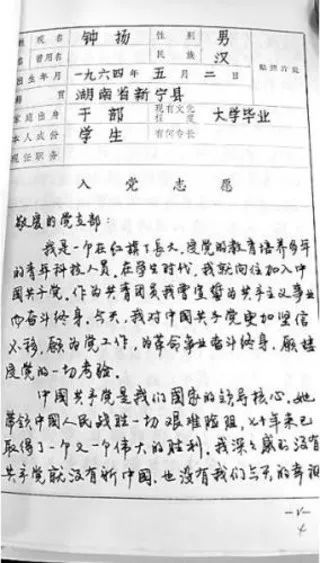 姓 现名 钟扬 性别 男
名 曾用名 民族 汉
出生年月 一九六四年五月二日 贴照片处
籍贯 湖南省新宁县
家庭出身 干部 现有文化程度 大学毕业
本人成份 学生 有何专长
现任职务
入党志愿
敬爱的党支部：
我是一个在红旗下长大，受党的教育培养多年
的青年科技人员。在学生时代，我就向往加入中
国共产党。作为共青团员我曾宣誓为共产主义事业
而奋斗终身，今天，我对中国共产党更加坚信
不移，愿为党工作，为革命事业奋斗终身，愿接
受党的一切考验。
中国共产党是我们国家的领导核心，她
带领中国人民战胜一切艰难险阻，六十年来已
取得了一个又一个伟大的胜利，我深深感到没有
共产党就没有新中国，也没有我们今天的幸福